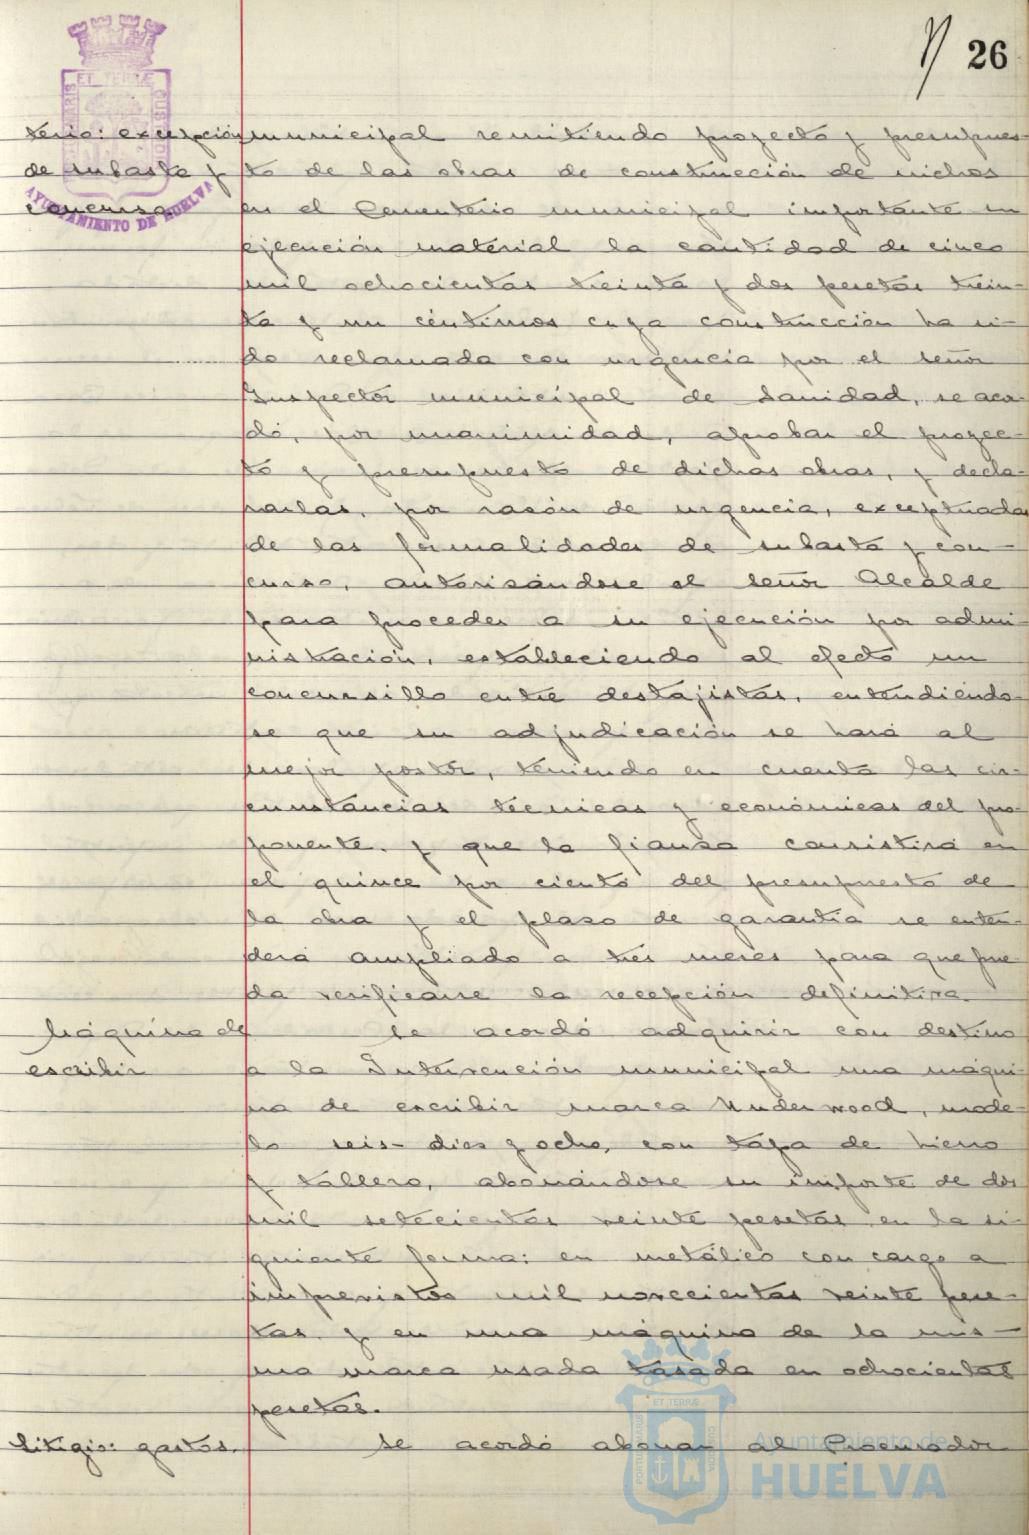 26
terio: excepción
de subasta y
concurso
municipal remitiendo proyecto y presupues-
to de las obras de construcción de nichos
en el Cementerio municipal importante en
ejecución material la cantidad de cinco
mil ochocientas treinta y dos pesetas trein-
ta y un céntimos cuya construcción ha si-
do reclamada con urgencia por el señor
Inspector municipal de Sanidad, se acor-
dó, por unanimidad, aprobar el proyec-
to y presupuesto de dichas obras, y decla-
rarlas, por razón de urgencia, exceptuadas
de las formalidades de subasta y con-
curso, autorizándose al señor Alcalde
para proceder a su ejecución por admi-
nistración, estableciendo al efecto un
concursillo entre destajistas, entendiéndo-
se que su adjudicación se hará al
mejor postor, teniendo en cuenta las cir-
cunstancias técnicas y económicas del pro-
ponente, y que la fianza consistirá en
el quince por ciento del presupuesto de
la obra y el plazo de garantía se enten-
derá ampliado a tres meses para que pue-
da verificarse la recepción definitiva.
Máquina de
escribir
Se acordó adquirir con destino
a la Intervención municipal una máqui-
na de escribir marca Underwood, mode-
lo seis-diez y ocho, con tapa de hierro
y tablero, abonándose su importe de dos
mil setecientas veinte pesetas en la si-
guiente forma: en metálico con cargo a
imprevistos mil novecientas veinte pese-
tas y en una máquina de la mis-
ma marca usada tasada en ochocientas
pesetas.
Litigio: gastos.
Se acordó abonar al Procurador
ET TERRAE
AYUNTAMIENTO DE HUELVA
Ayuntamiento de
HUELVA